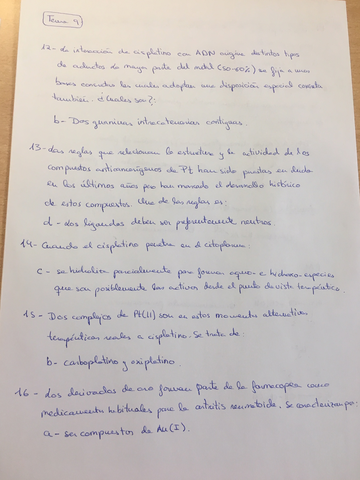 Tema 9
12- La interacción de cisplatino con ADN origina distintos tipos
de aductos. La mayor parte del metal (50-60%) se fija a unas
bases concretas las cuales adoptan una disposición especial concreta
también. ¿Cuáles son?:
b- Dos guaninas intracatenarias contiguas.
13- Las reglas que relacionan la estructura y la actividad de los
compuestos antitumorígenos de Pt han sido puestas en duda
en los últimos años pero han marcado el desarrollo histórico
de estos compuestos. Una de las reglas es:
d- Los ligandos deben ser preferentemente neutros.
14- Cuando el cisplatino penetra en el citoplasma:
c- se hidroliza parcialmente para formar aquo- e hidroxo-especies
que son posiblemente las activas desde el punto de vista terapéutico.
15- Dos complejos de Pt(II) son en estos momentos alternativas
terapéuticas reales a cisplatino. Se trata de:
b- carboplatino y oxiplatino.
16- Los derivados de oro forman parte de la farmacopea como
medicamentos habituales para la artritis reumatoide. Se caracterizan por:
a- ser compuestos de Au(I).